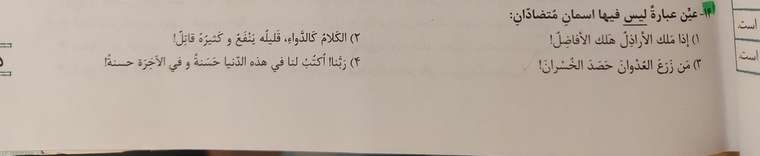 ۱۴- عیِّن عبارةً لیس فیها اسمانِ مُتضادّانِ:
۱) إذا مَلك الأراذِلُ هَلك الأفاضِلُ! ۲) الکَلامُ کَالدَّواءِ، قَلیلُه یَنْفَعُ وَ کَثیرُهُ قاتِلٌ!
۳) مَن زَرَعَ العُدْوانَ حَصَدَ الخُسْرانَ! ۴) رَبَّنا! اُکتُبْ لنا في هذه الدّنیا حَسَنةً و في الآخِرَة حسنةً!
است.
است.